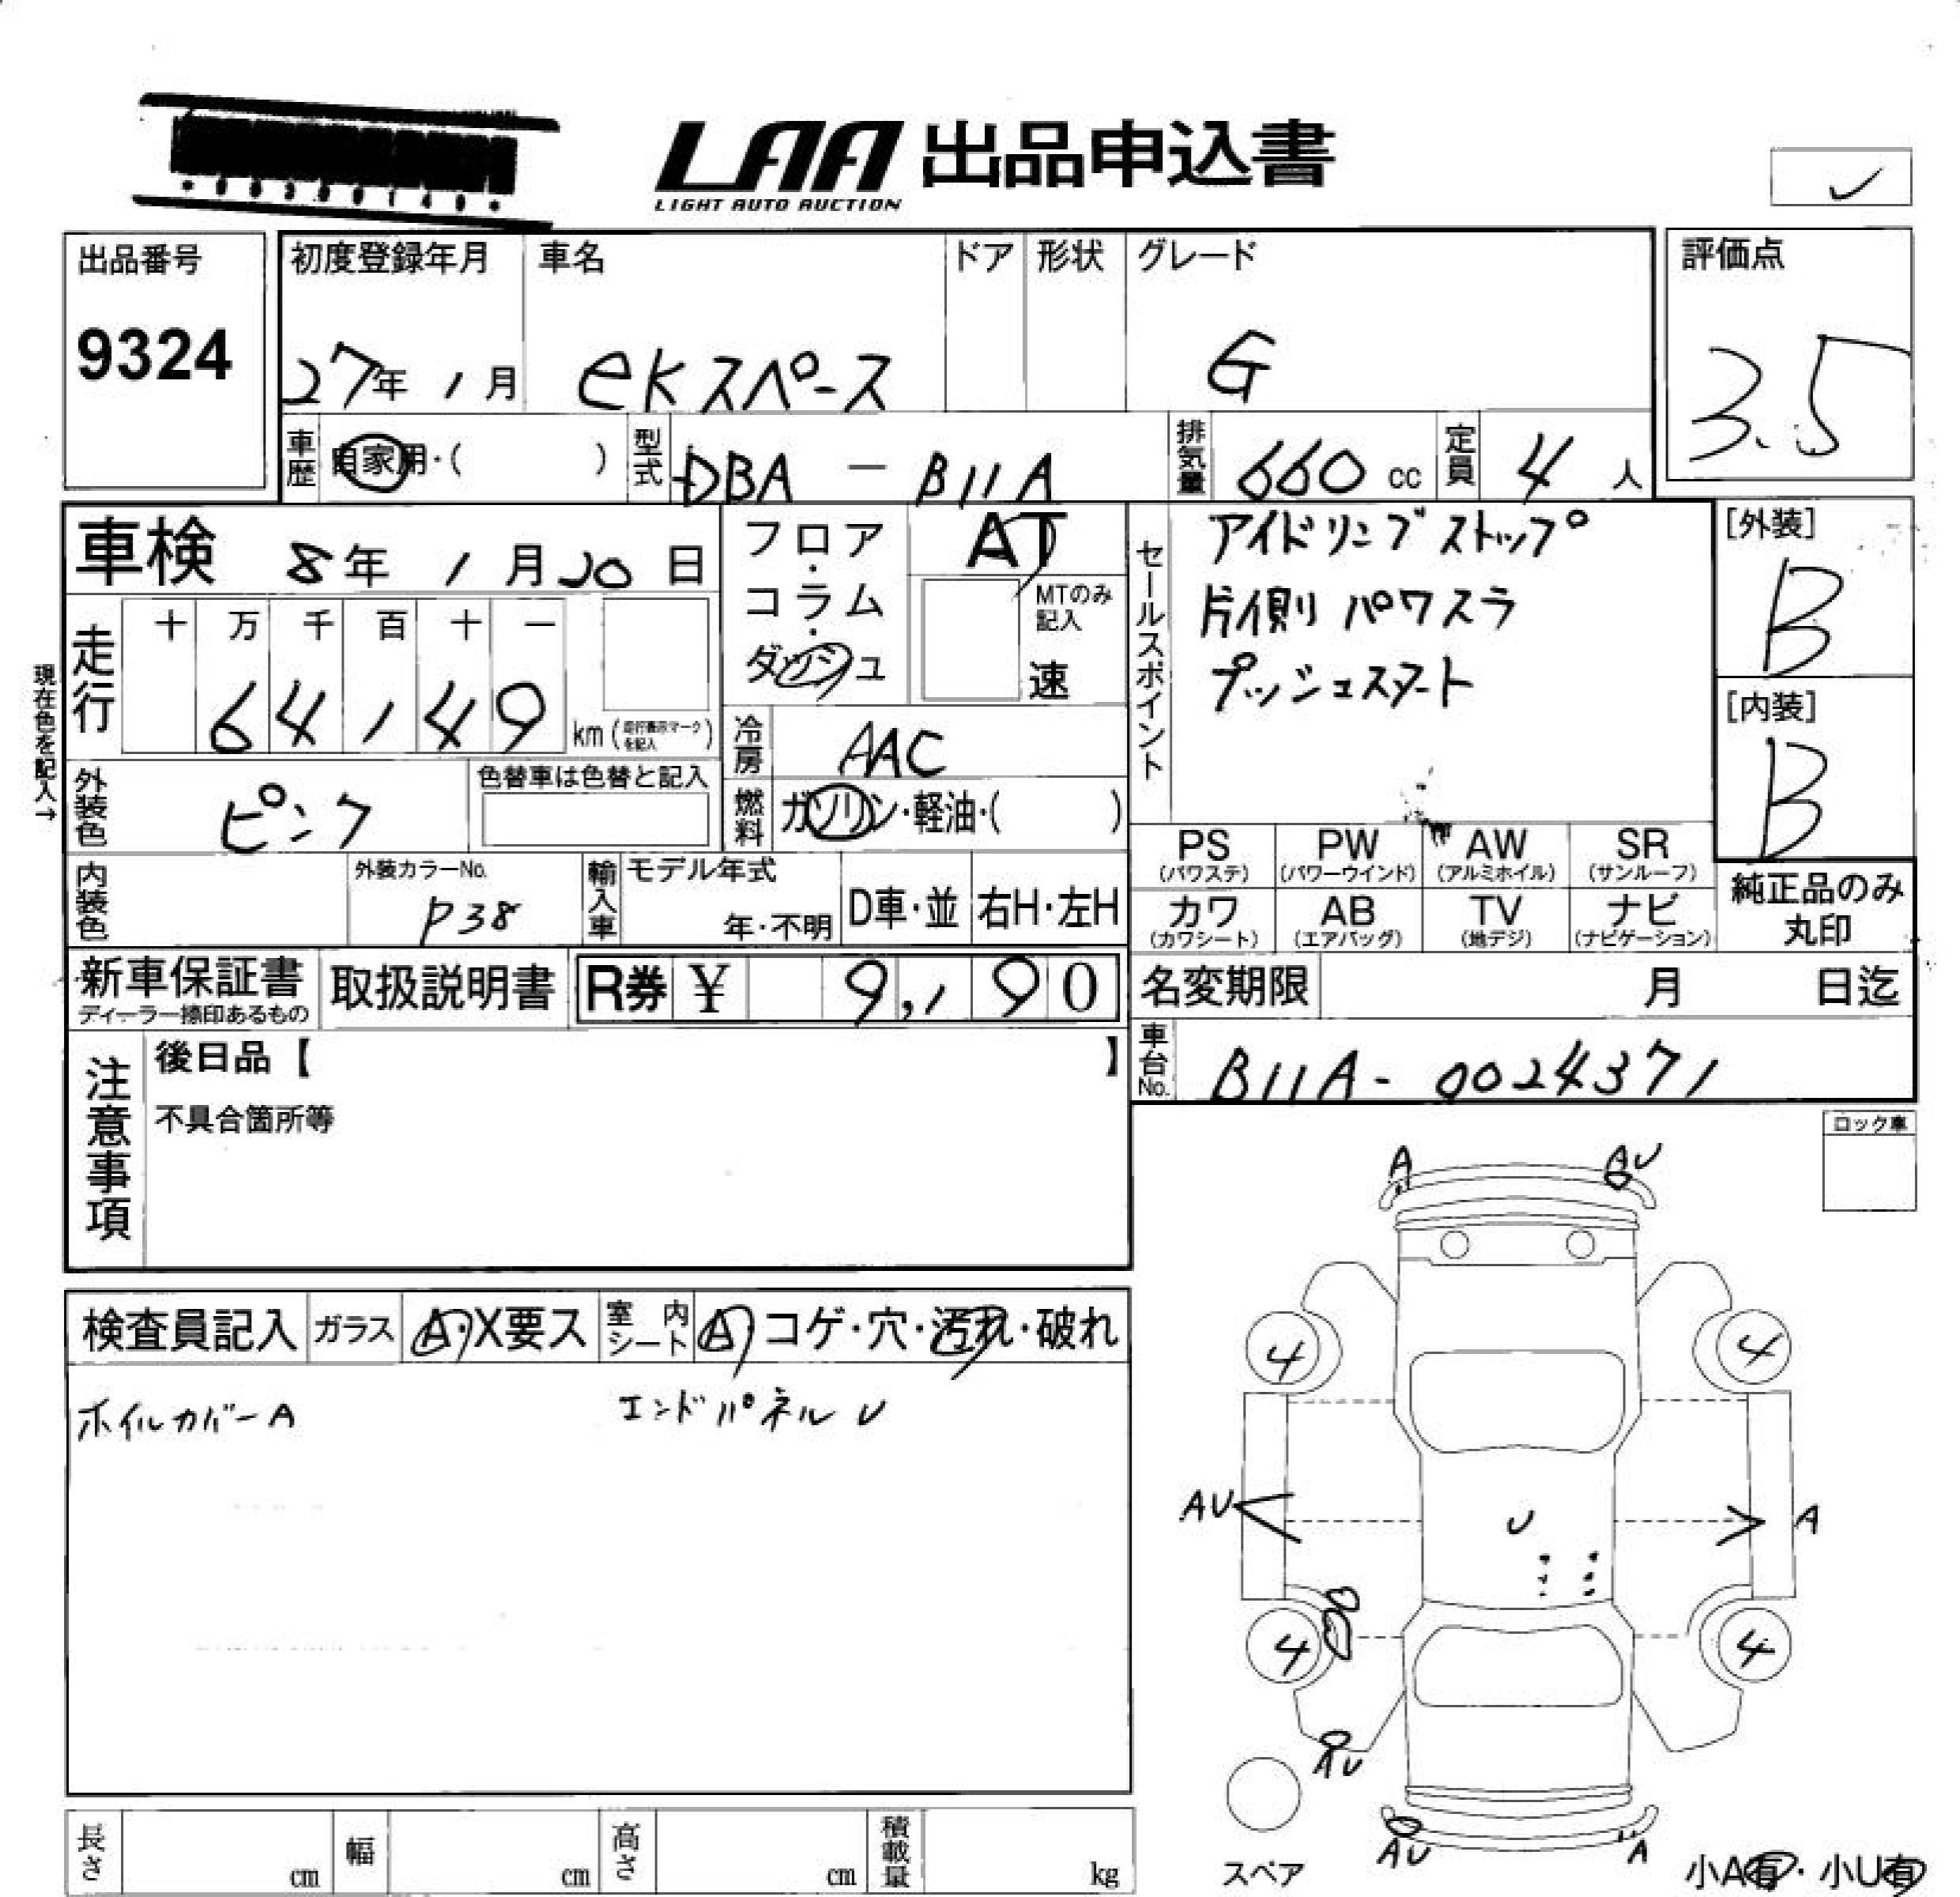 LAA 出品申込書
LIGHT AUTO AUCTION
✓
出品番号 初度登録年月 車名 ドア 形状 グレード 評価点
9324 27年 1月 eKスペース G 3.5
車歴 自家用・( ) 型式 DBA - B11A 排気量 660 cc 定員 4 人
車検 8年 1月 20日
フロア・コラム・ダッシュ
AT
MTのみ記入
速
セールスポイント
アイドリングストップ
片側パワスラ
プッシュスタート
[外装]
B
[内装]
B
現在色を記入→
走行 十 万 千 百 十 一
64149 km (走行表示マークを記入)
冷房 AAC
外装色 ピンク 色替車は色替と記入
燃料 ガソリン・軽油・( )
PS (パワステ) PW (パワーウインド) AW (アルミホイル) SR (サンルーフ)
カワ (カワシート) AB (エアバッグ) TV (地デジ) ナビ (ナビゲーション)
純正品のみ
丸印
内装色 外装カラーNo. P38 輸入車 モデル年式 年・不明 D車・並 右H・左H
新車保証書 取扱説明書 R券 ¥ 9,190
ディーラー捺印あるもの
名変期限 月 日迄
車台No. B11A-0024371
注意事項
後日品【 】
不具合箇所等
ロック車
検査員記入 ガラス A・X要ス 室内シート A・コゲ・穴・汚れ・破れ
ホイルカバーA エンドパネルU
A AU
4 4
AU U A
4 4
AU
AU A
スペア
小A有・小U有
長さ cm 幅 cm 高さ cm 積載量 kg